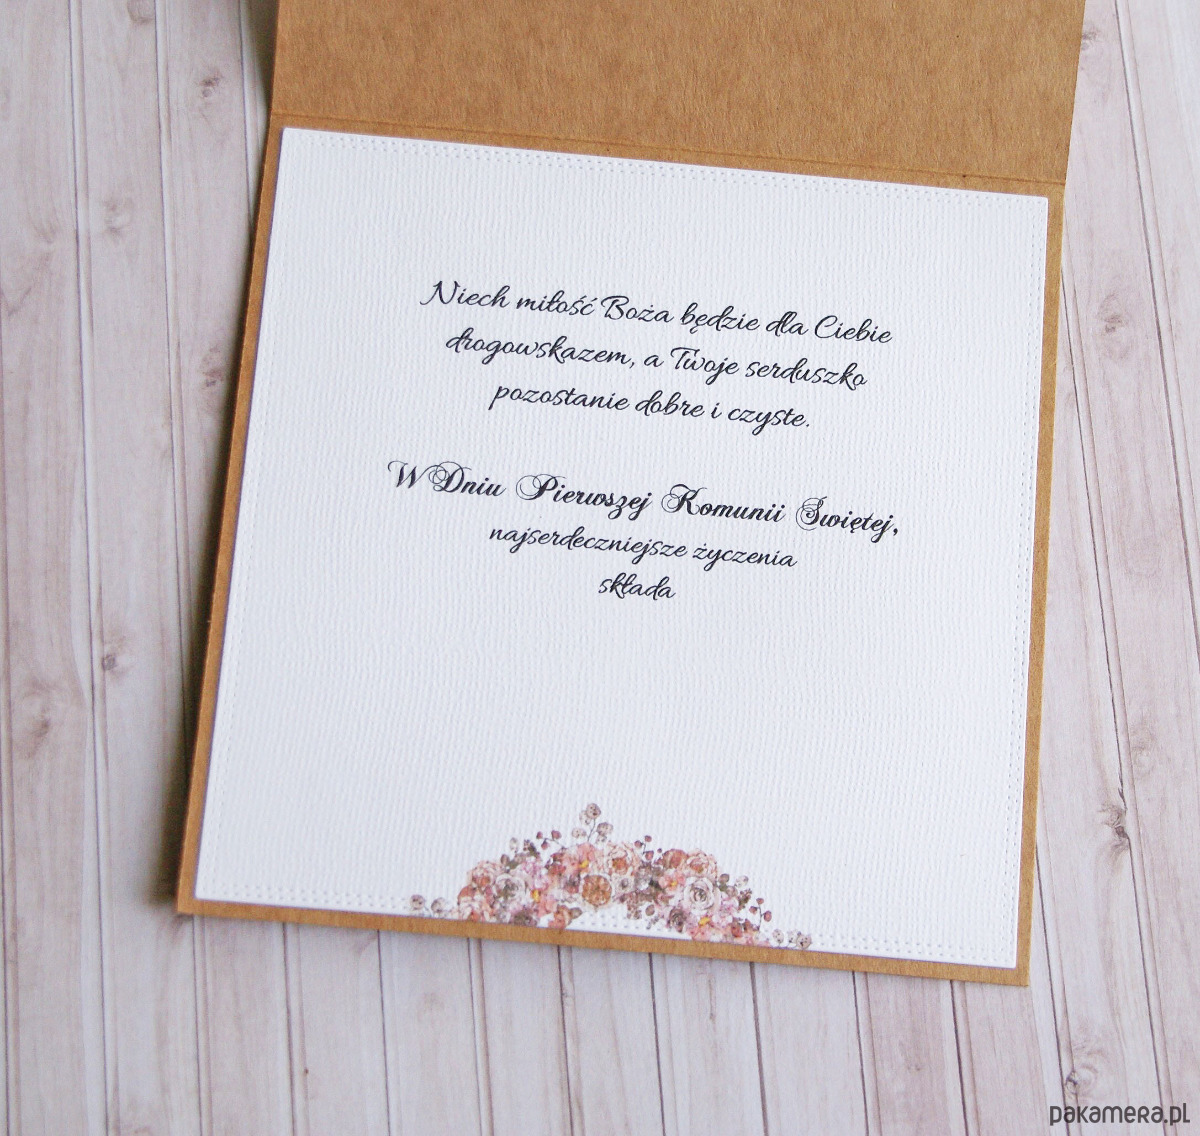 Niech miłość Boża będzie dla Ciebie
drogowskazem, a Twoje serduszko
pozostanie dobre i czyste.
W Dniu Pierwszej Komunii Świętej,
najserdeczniejsze życzenia
składa
pakamera.pl